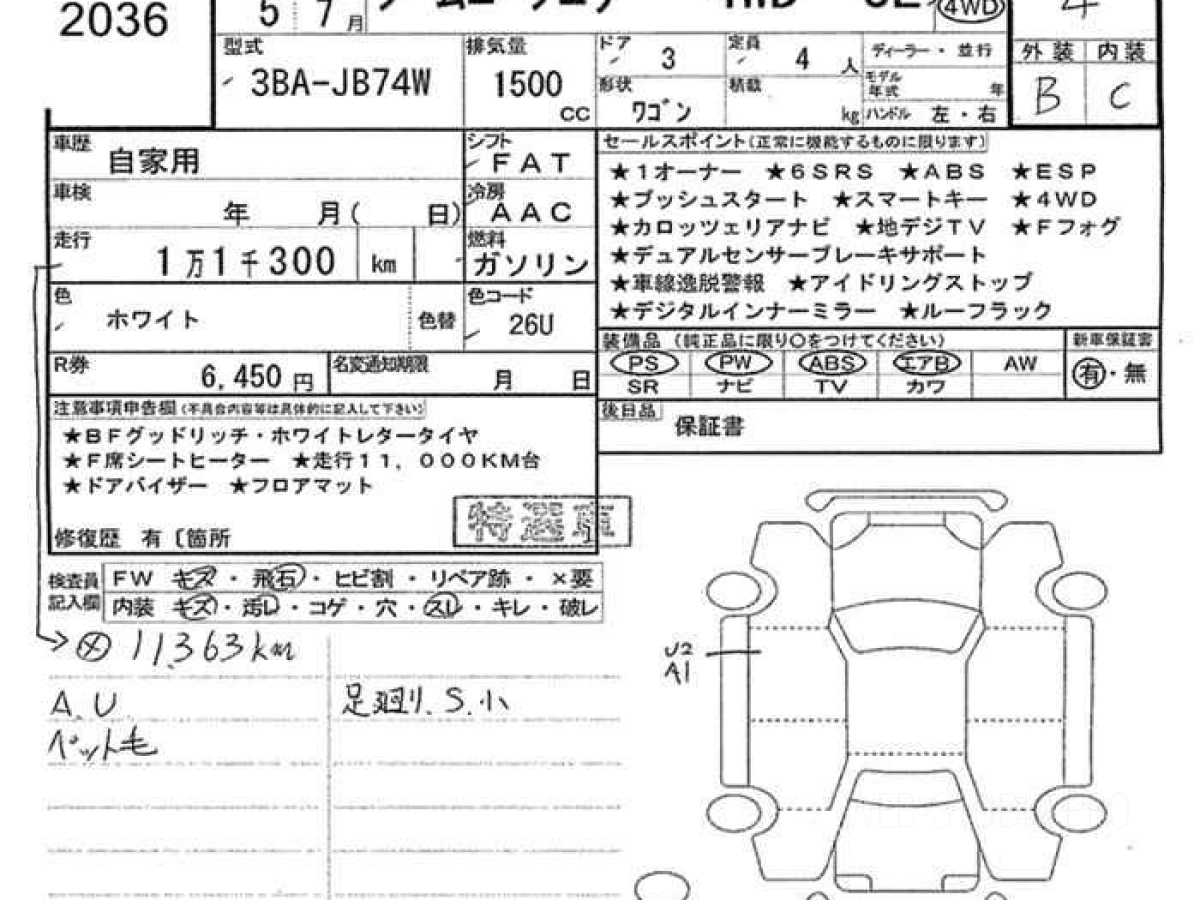 2036
5 7月
4WD 4
型式 3BA-JB74W
排気量 1500 CC
ドア 3
定員 4 人
形状 ワゴン
積載 kg
ディーラー・並行
モデル年式 年
ハンドル 左・右
外装 内装
B C
車歴 自家用
シフト FAT
車検 年 月( 日)
冷房 AAC
走行 1万1千300 km
燃料 ガソリン
色 ホワイト 色替
色コード 26U
R券 6,450円
名変通知期限 月 日
セールスポイント(正常に機能するものに限ります)
★1オーナー ★6SRS ★ABS ★ESP
★プッシュスタート ★スマートキー ★4WD
★カロッツェリアナビ ★地デジTV ★Fフォグ
★デュアルセンサーブレーキサポート
★車線逸脱警報 ★アイドリングストップ
★デジタルインナーミラー ★ルーフラック
装備品(純正品に限り○をつけてください) 新車保証書
PS PW ABS エアB AW 有・無
SR ナビ TV カワ
後日品 保証書
注意事項申告欄(不具合内容等は具体的に記入して下さい)
★BFグッドリッチ・ホワイトレタータイヤ
★F席シートヒーター ★走行11,000KM台
★ドアバイザー ★フロアマット
特選車
修復歴 有〔箇所
検査員記入欄
FW キズ・飛石・ヒビ割・リペア跡・×要
内装 キズ・汚レ・コゲ・穴・スレ・キレ・破レ
11,363km
A.U
足廻り.S.小
ペット毛
U2
A1